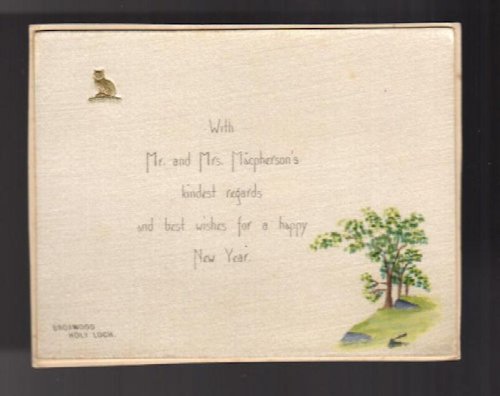 With
Mr. and Mrs. Macpherson's
kindest regards
and best wishes for a happy
New Year.
HOLY LOCH.